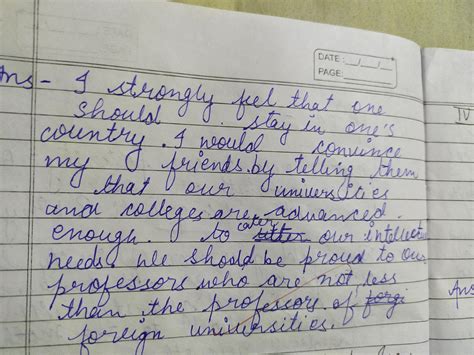 DATE: __/__/__
PAGE:
Ans - I strongly feel that one
should stay in one's
country. I would convince
my friends by telling them
that our universities
and colleges are advanced
enough. to cater our intellect
needs. We should be proud to our
professors who are not less
than the professors of
foreign universities.
IV
Ans